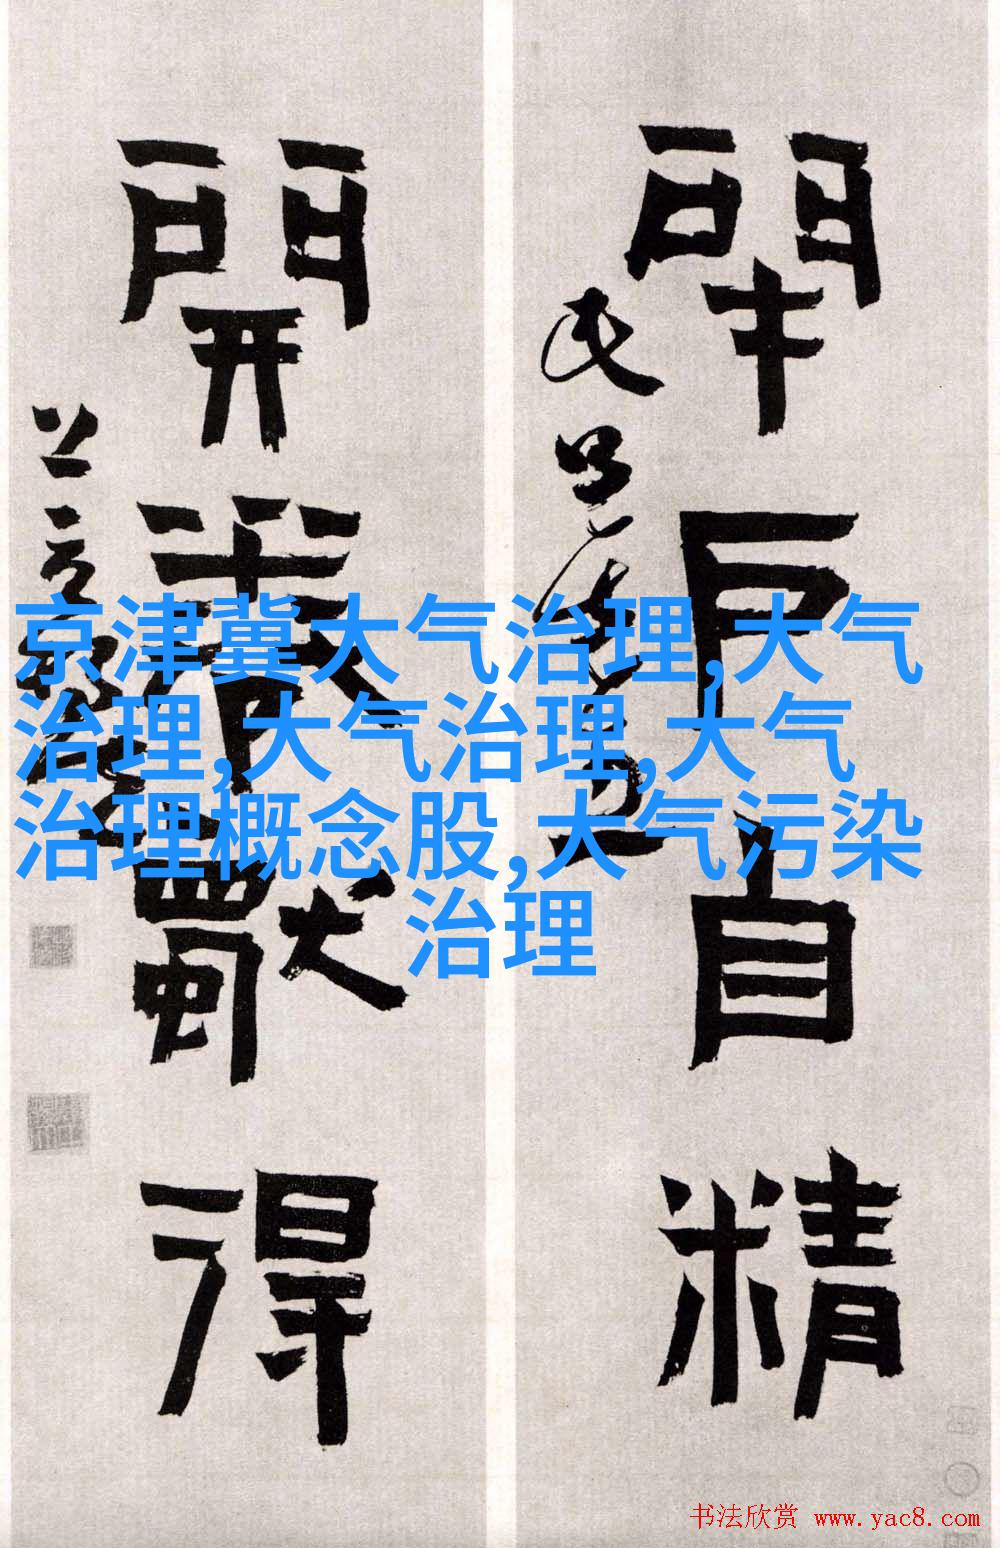 閉戶自精
開卷獨得
京津冀大气治理,大气
治理,大气治理,大气
治理概念股,大气污染
治理
书法欣赏 www.yac8.com